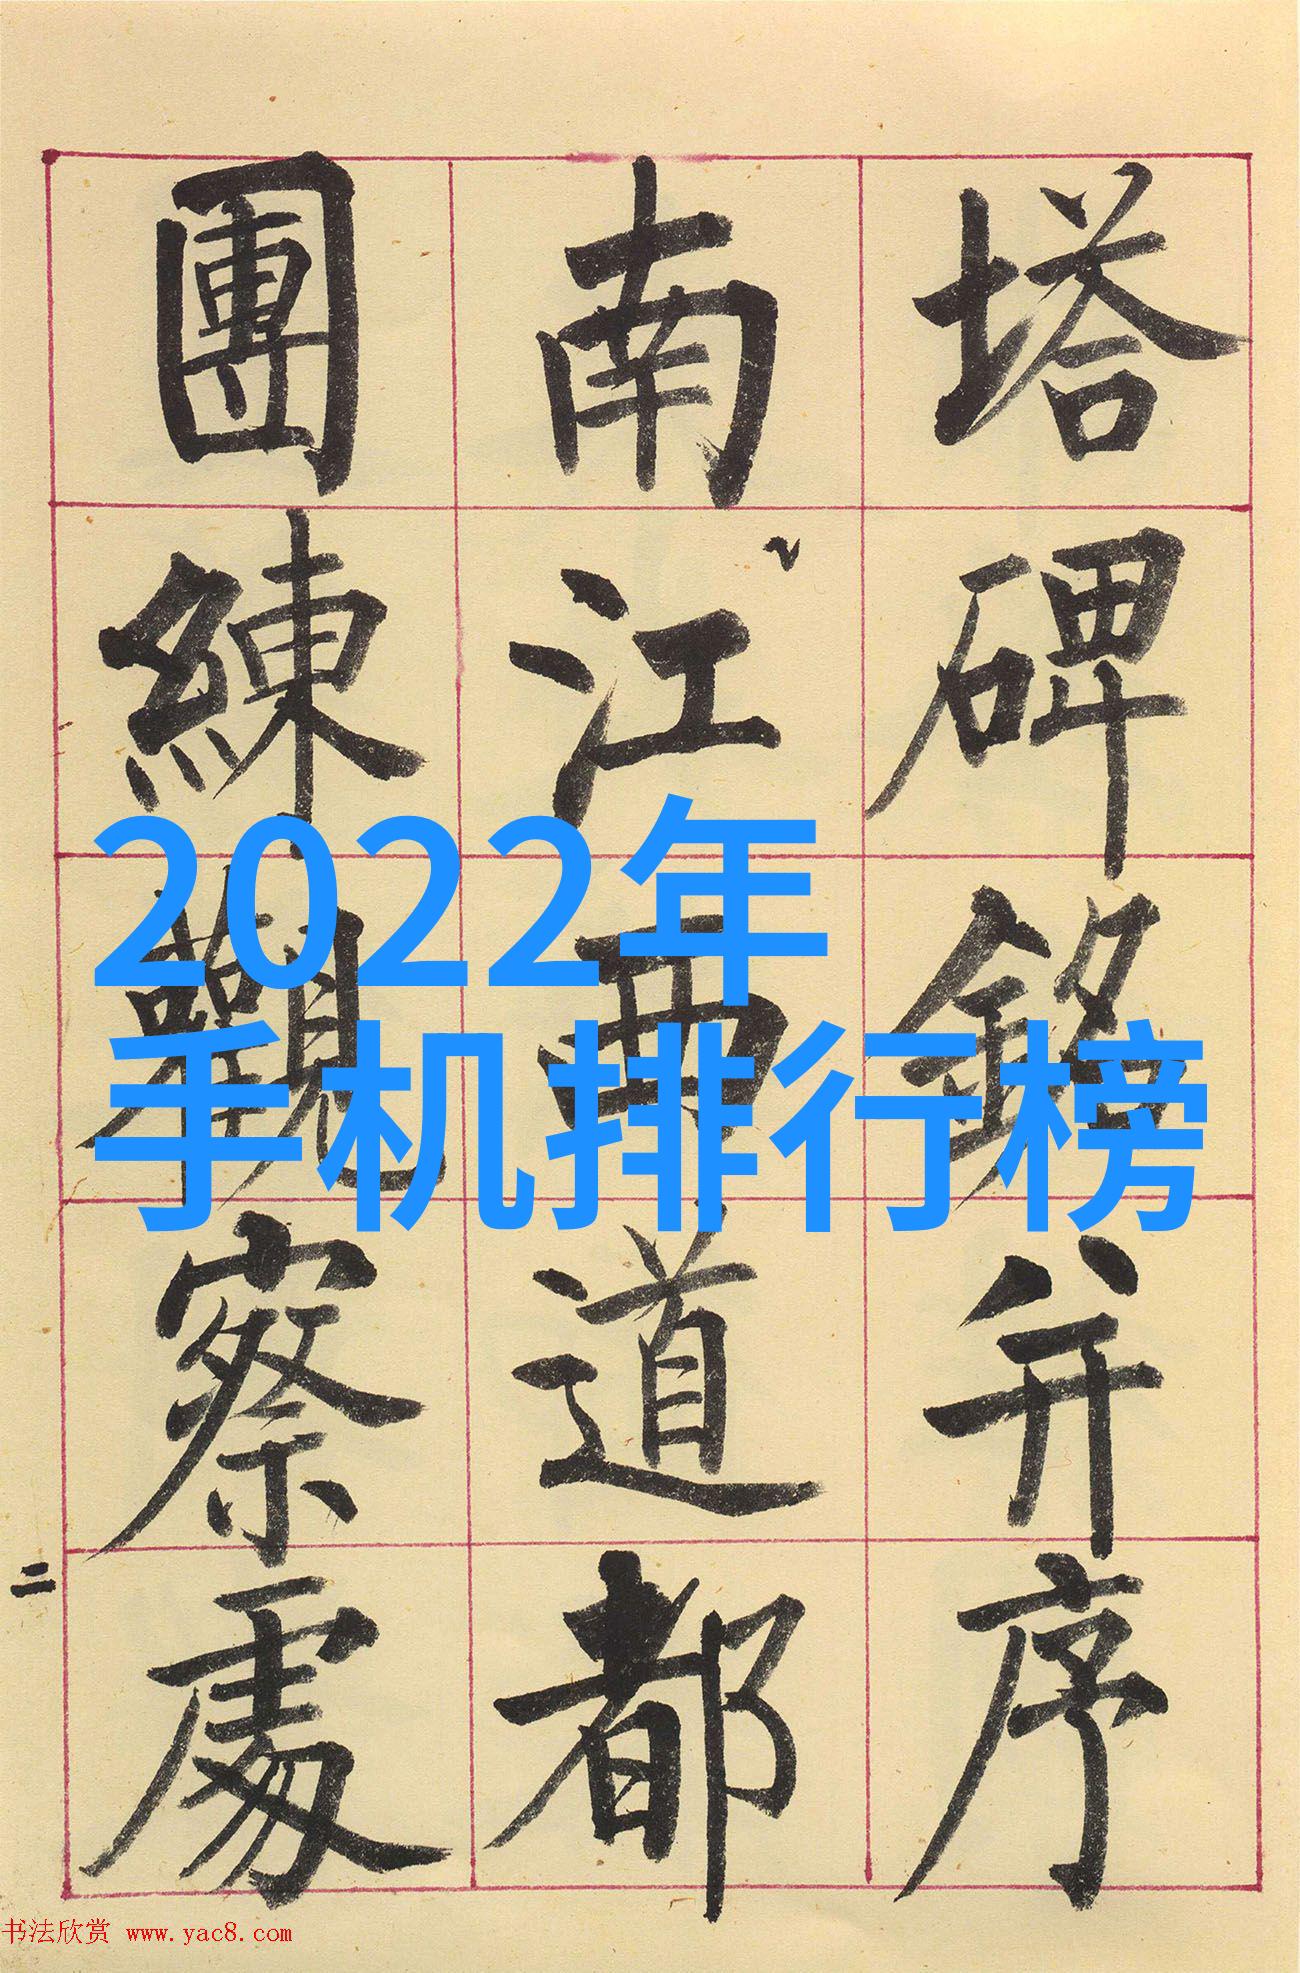 塔碑銘并序
南江西道都
團練觀察處
二
2022年
手机排行榜
书法欣赏 www.yac8.com